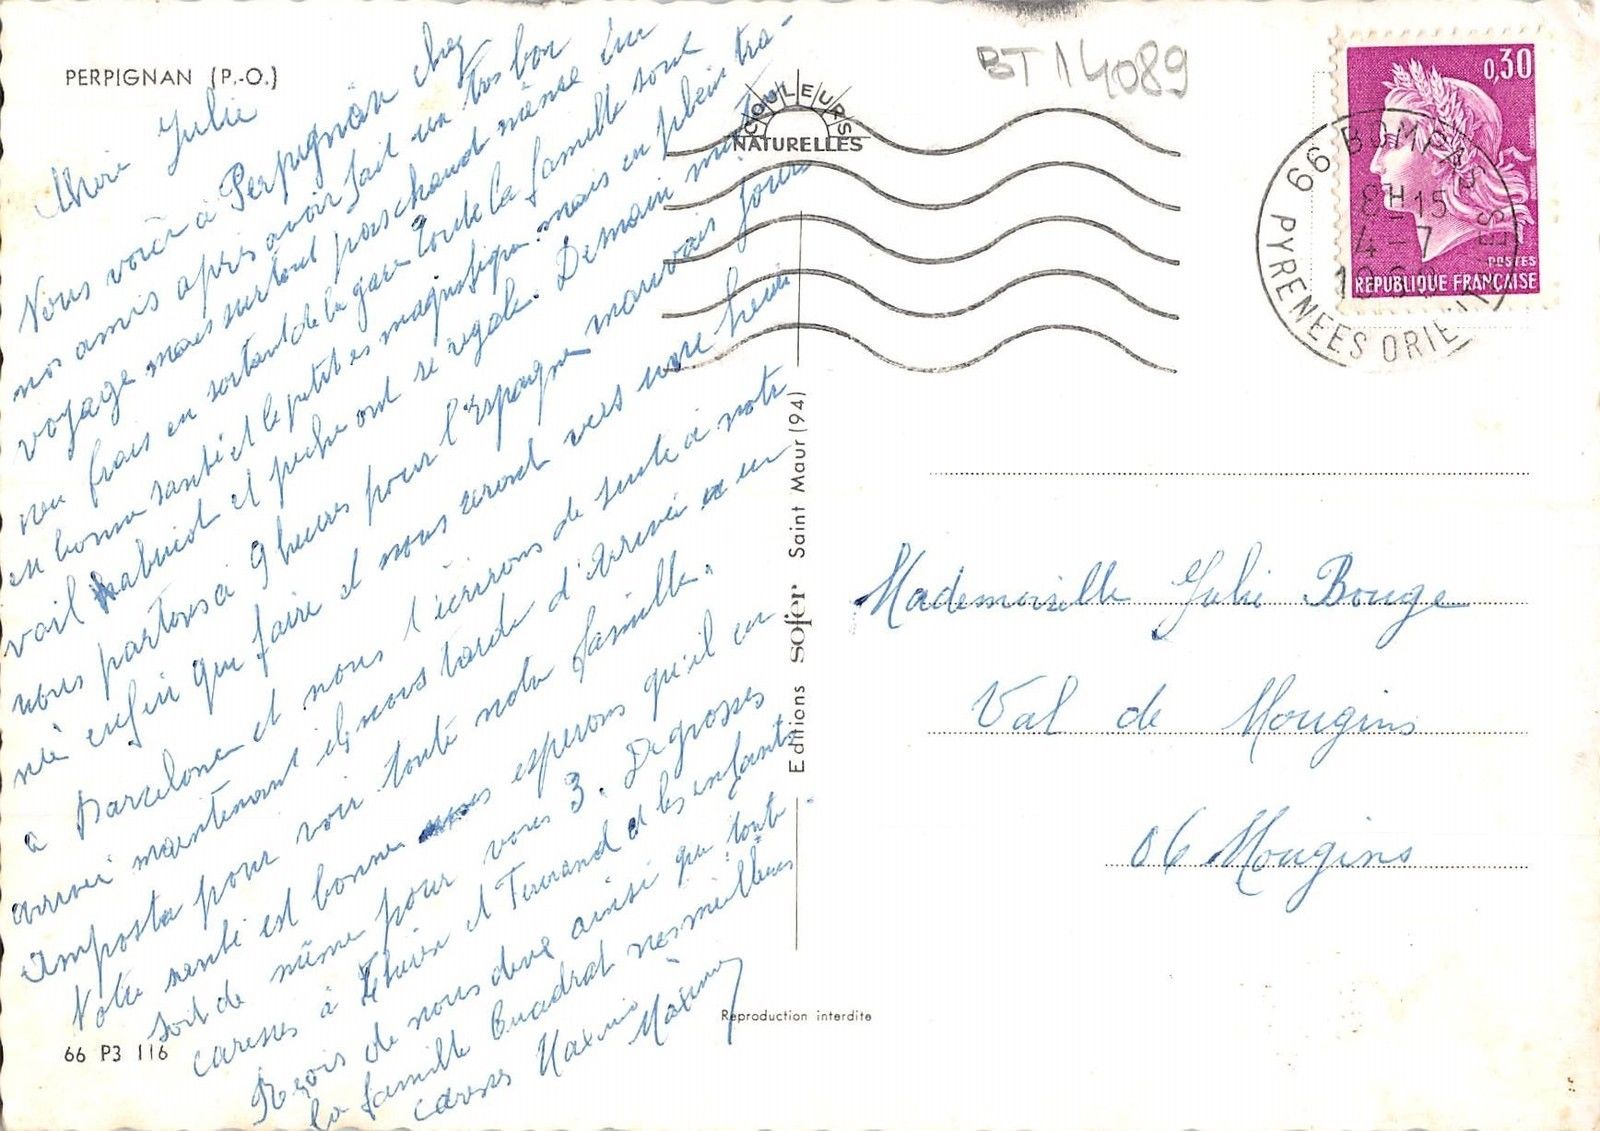 PERPIGNAN (P.-O.)
Chère Julie
Nous voici à Perpignan chez
nos amis après avoir fait un très bon
voyage mais surtout pas chaud même un
peu frais en sortant de la gare toute la famille sont
en bonne santé et le petit es magnifique. mais en plein tra-
vail abricot et pêche ont se régale. Demain matin
nous partons à 9 heures pour l'espagne mauvais jours
née enfin que faire et nous seront vers une heure
à Barcelone et nous t'écrirons de suite à notre
arrivée maintenant il nous tarde d'Arrivée en
Amposta pour voir toute notre famille.
Notre santé est bonne nous esperons qu'il en
soit de même pour vous 3. De grosses
caresses à et et les enfants
Reçois de nous deux ainsi que toute
la famille Cuadrat nos meilleures
caresses Maximin
Maximin
66 P3 116
COULEURS
NATURELLES
Editions sofer Saint Maur (94)
Reproduction interdite
BT 14089
0,30
POSTES
REPUBLIQUE FRANÇAISE
66 BOMPAS
8H-15
4-7
PYRENEES ORIENTALES
Mademoiselle Julie Bouge
Val de Mougins
06 Mougins